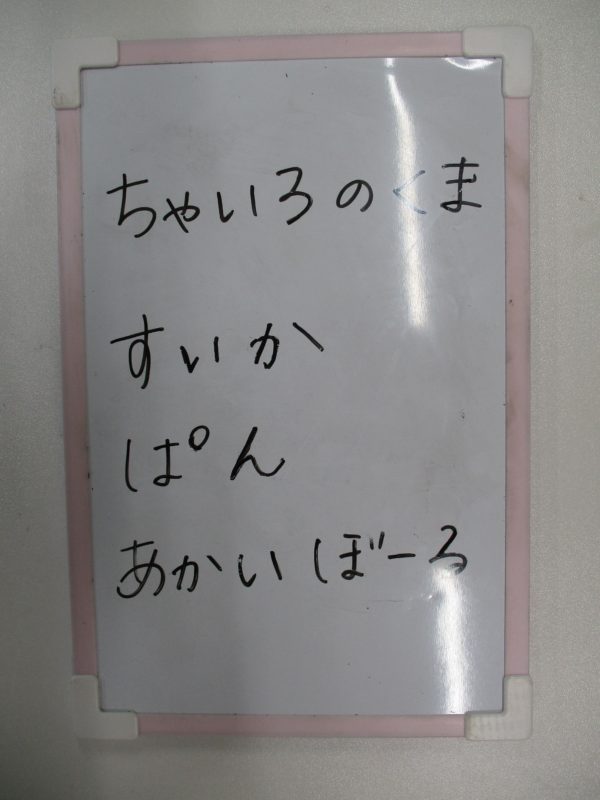 ちゃいろのくま
すいか
ぱん
あかいぼーる